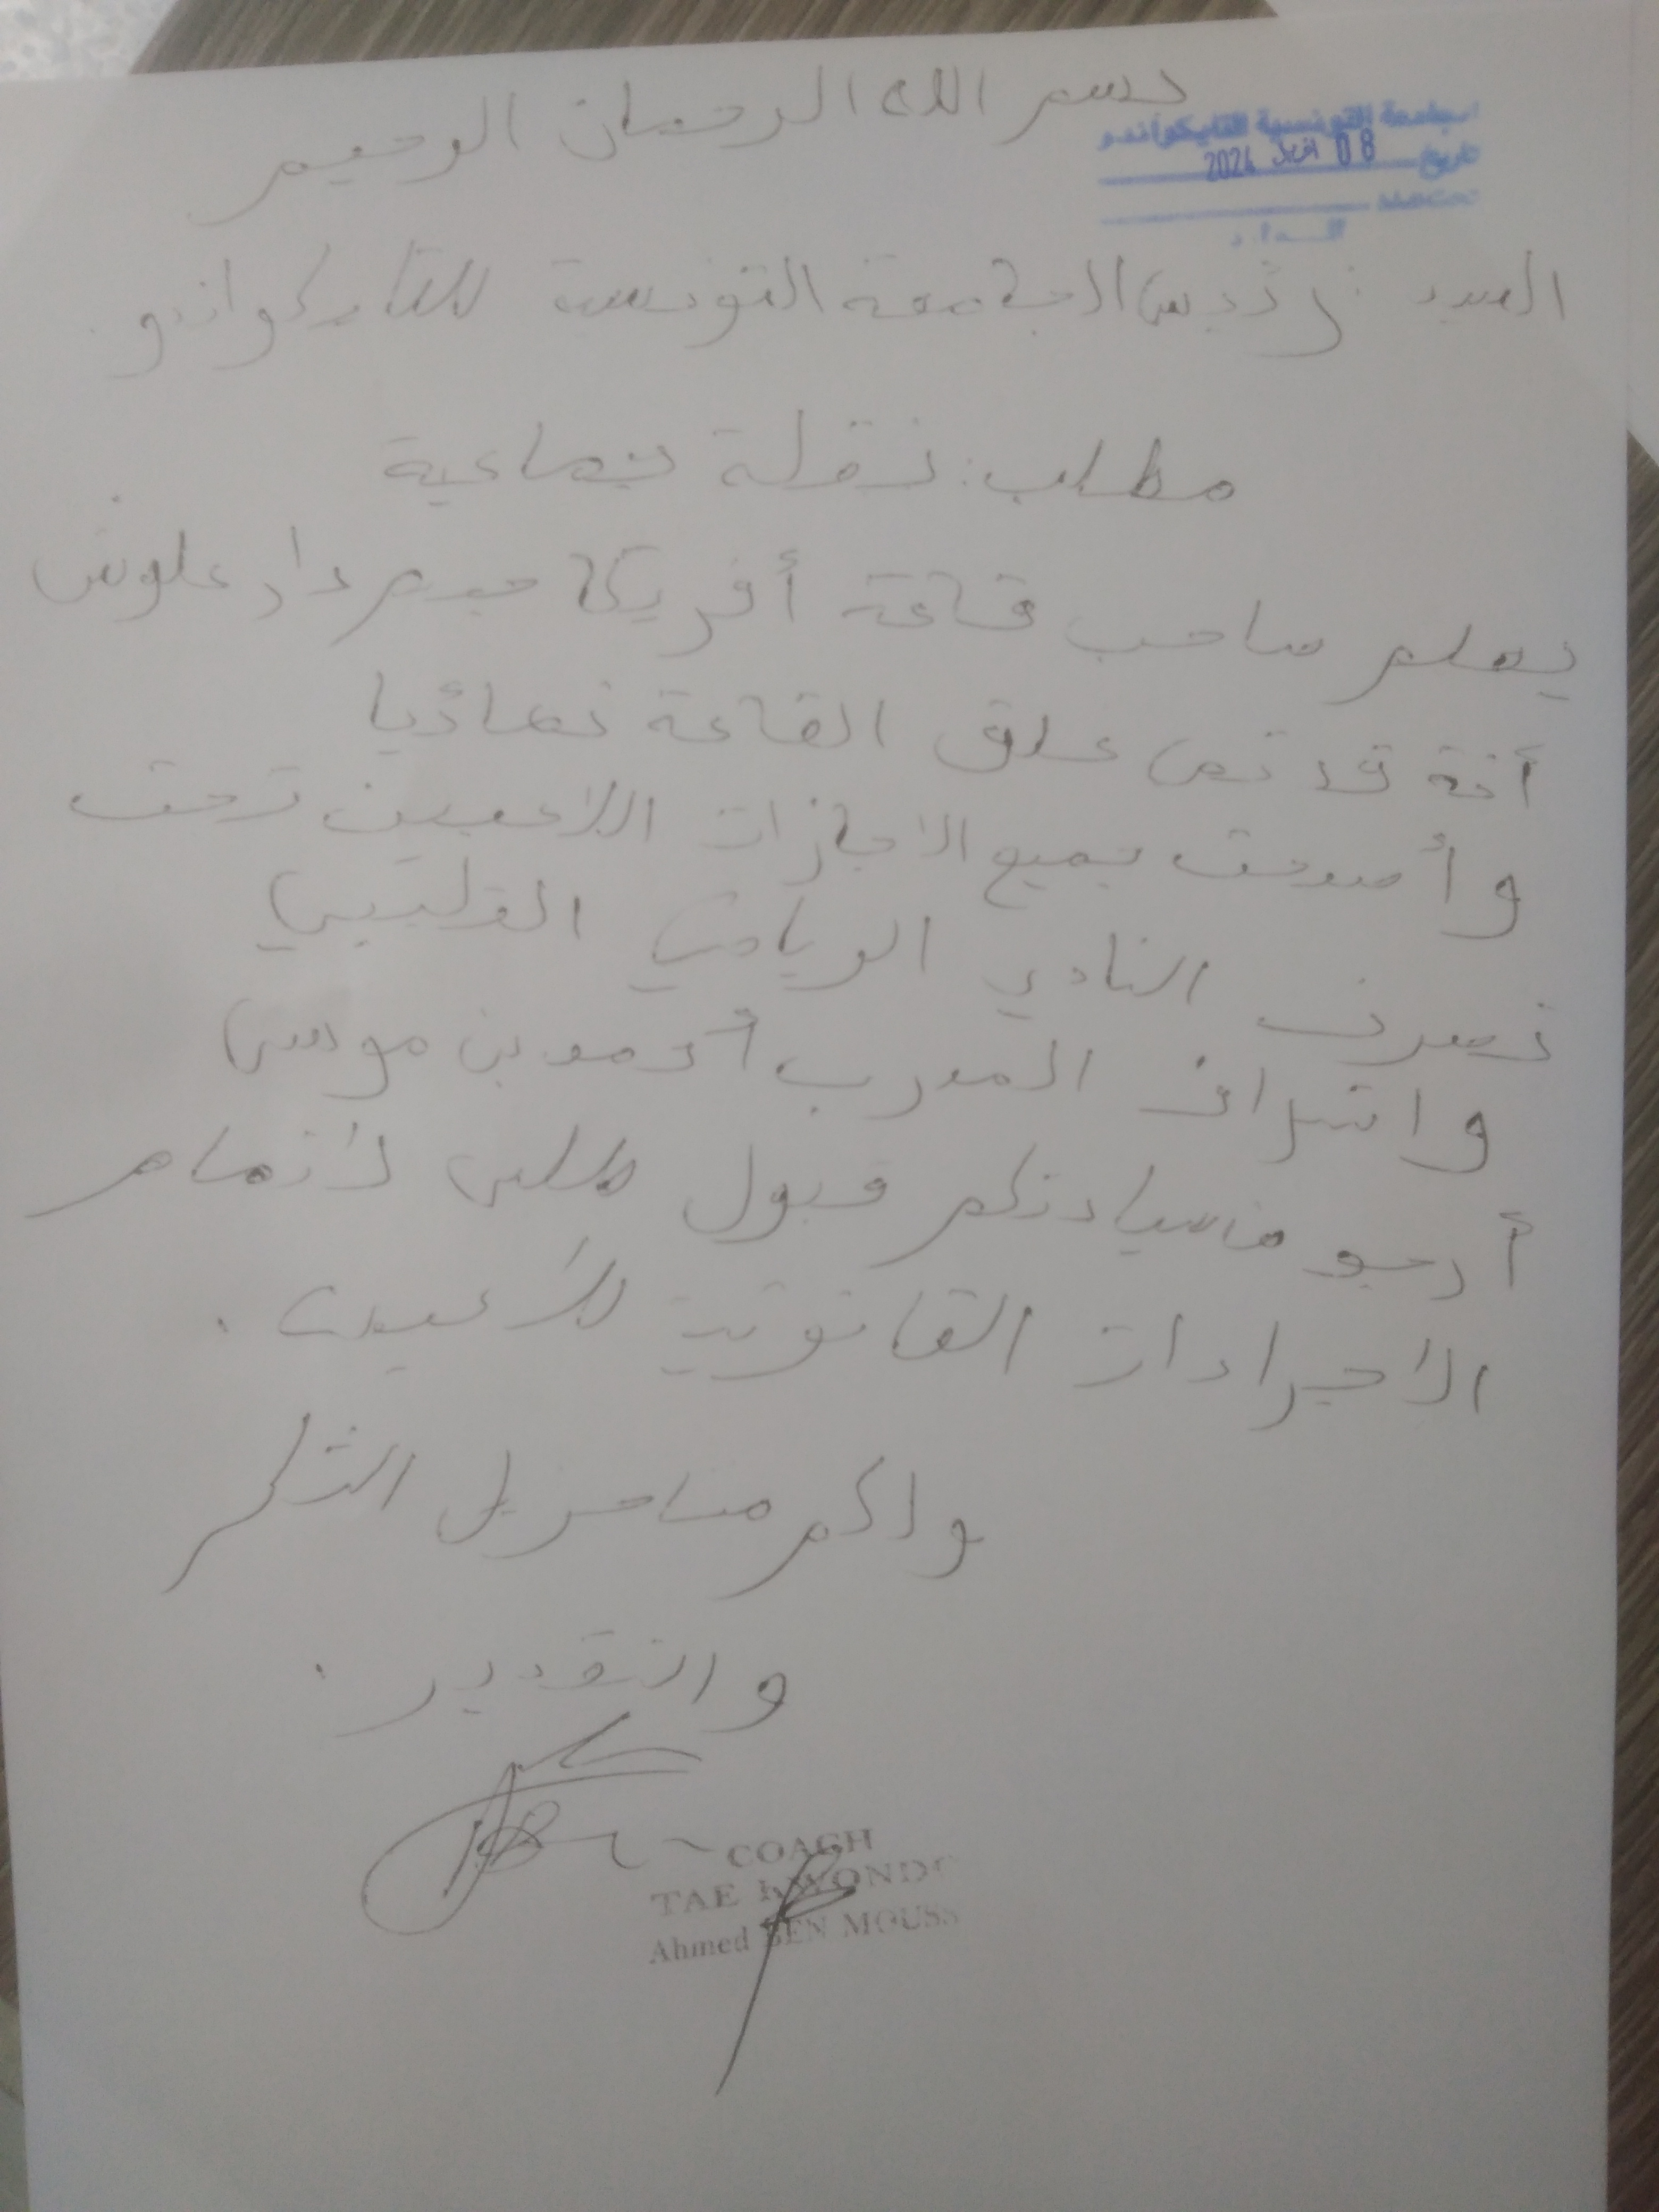 بسم الله الرحمان الرحيم
الجامعة التونسية للتايكواندو
تاريخ 08 افريل 2024
السيد رئيس الجامعة التونسية للتايكواندو.
مطلب: نقلة جماعية
يعلم صاحب قاعة أفريكا جيم دار علوش
أنه قد تم غلق القاعة نهائيا
وأصبحت جميع الاجازات اللاعبين تحت
تصرف النادي الرياضي القليبي
واشراف المدرب أحمد بن موسى
أرجو من سيادتكم قبول طلبي لاتمام
الاجراءات القانونية للاعبين.
ولكم منا جزيل الشكر
والتقدير.
COACH
TAE KWONDO
Ahmed BEN MOUSS